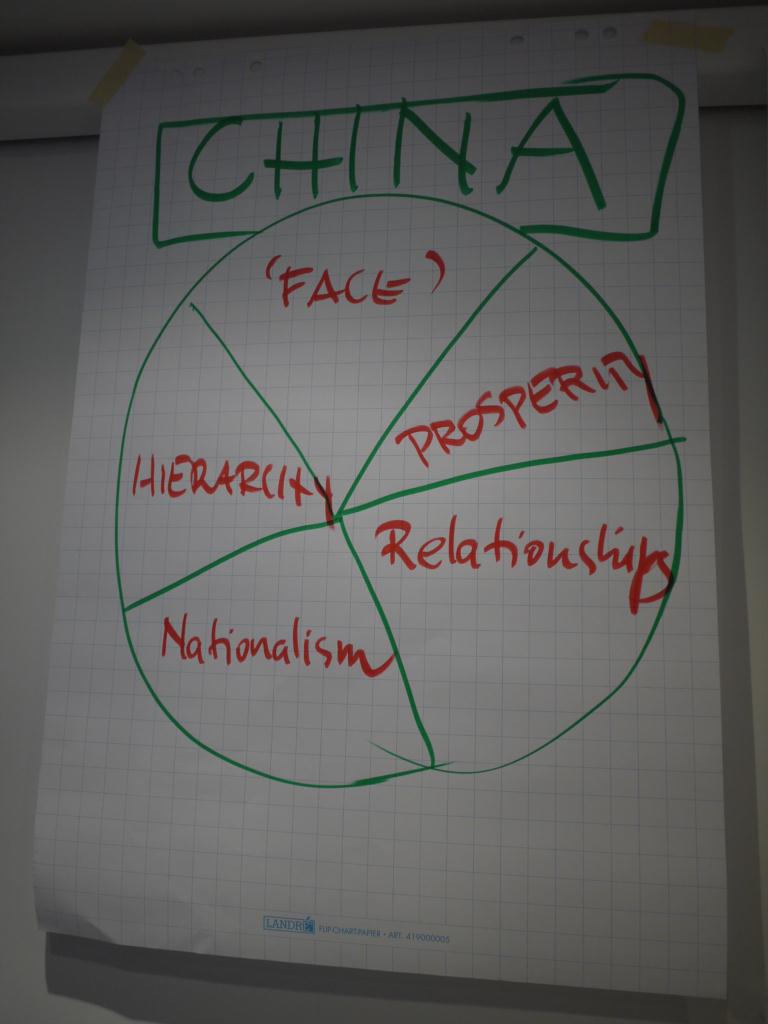 CHINA
'FACE'
PROSPERITY
HIERARCHY
Relationships
Nationalism
LANDRÉ FLIP-CHART-PAPIER • ART. 419000005